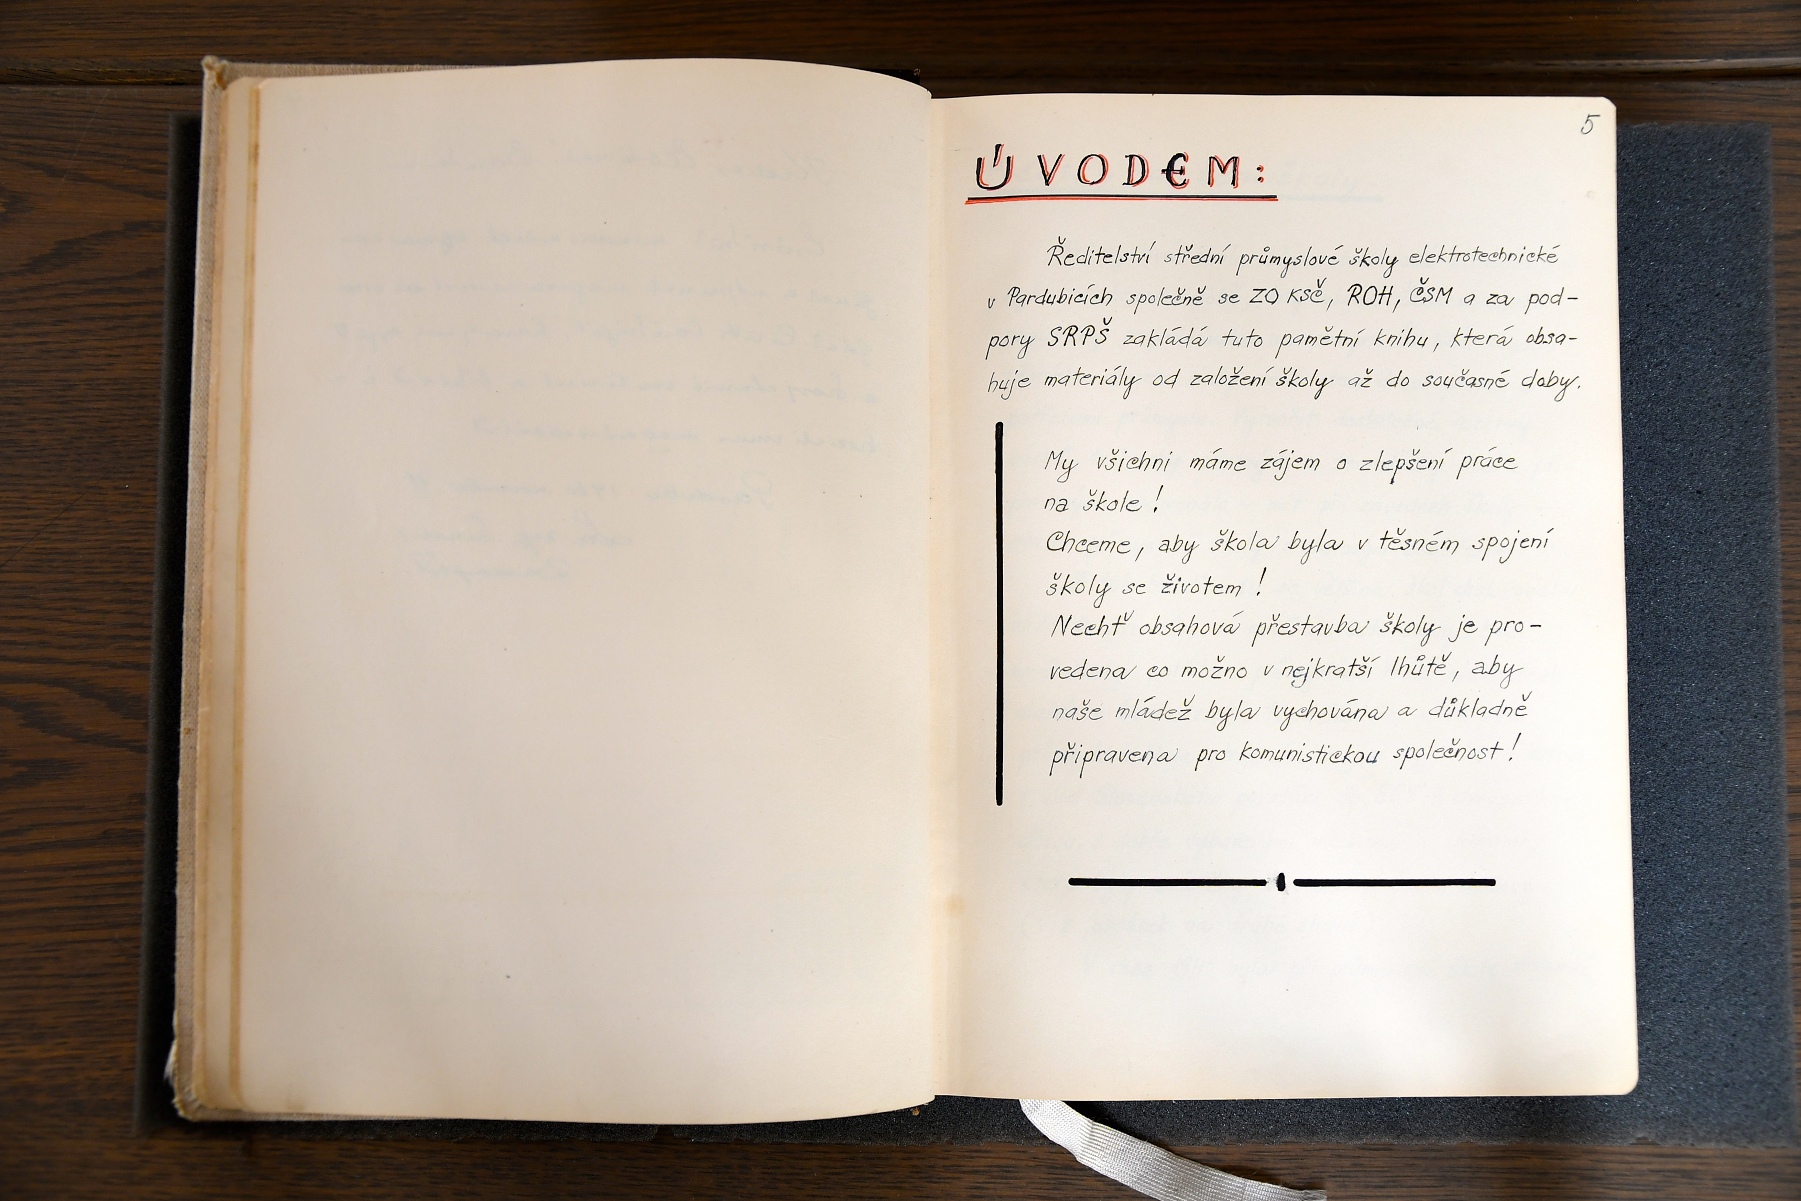 5
ÚVODEM:
Ředitelství střední průmyslové školy elektrotechnické
v Pardubicích společně se ZO KSČ, ROH, ČSM a za pod-
pory SRPŠ zakládá tuto pamětní knihu, která obsa-
huje materiály od založení školy až do současné doby.
My všichni máme zájem o zlepšení práce
na škole!
Chceme, aby škola byla v těsném spojení
školy se životem!
Nechť obsahová přestavba školy je pro-
vedena co možno v nejkratší lhůtě, aby
naše mládež byla vychována a důkladně
připravena pro komunistickou společnost!